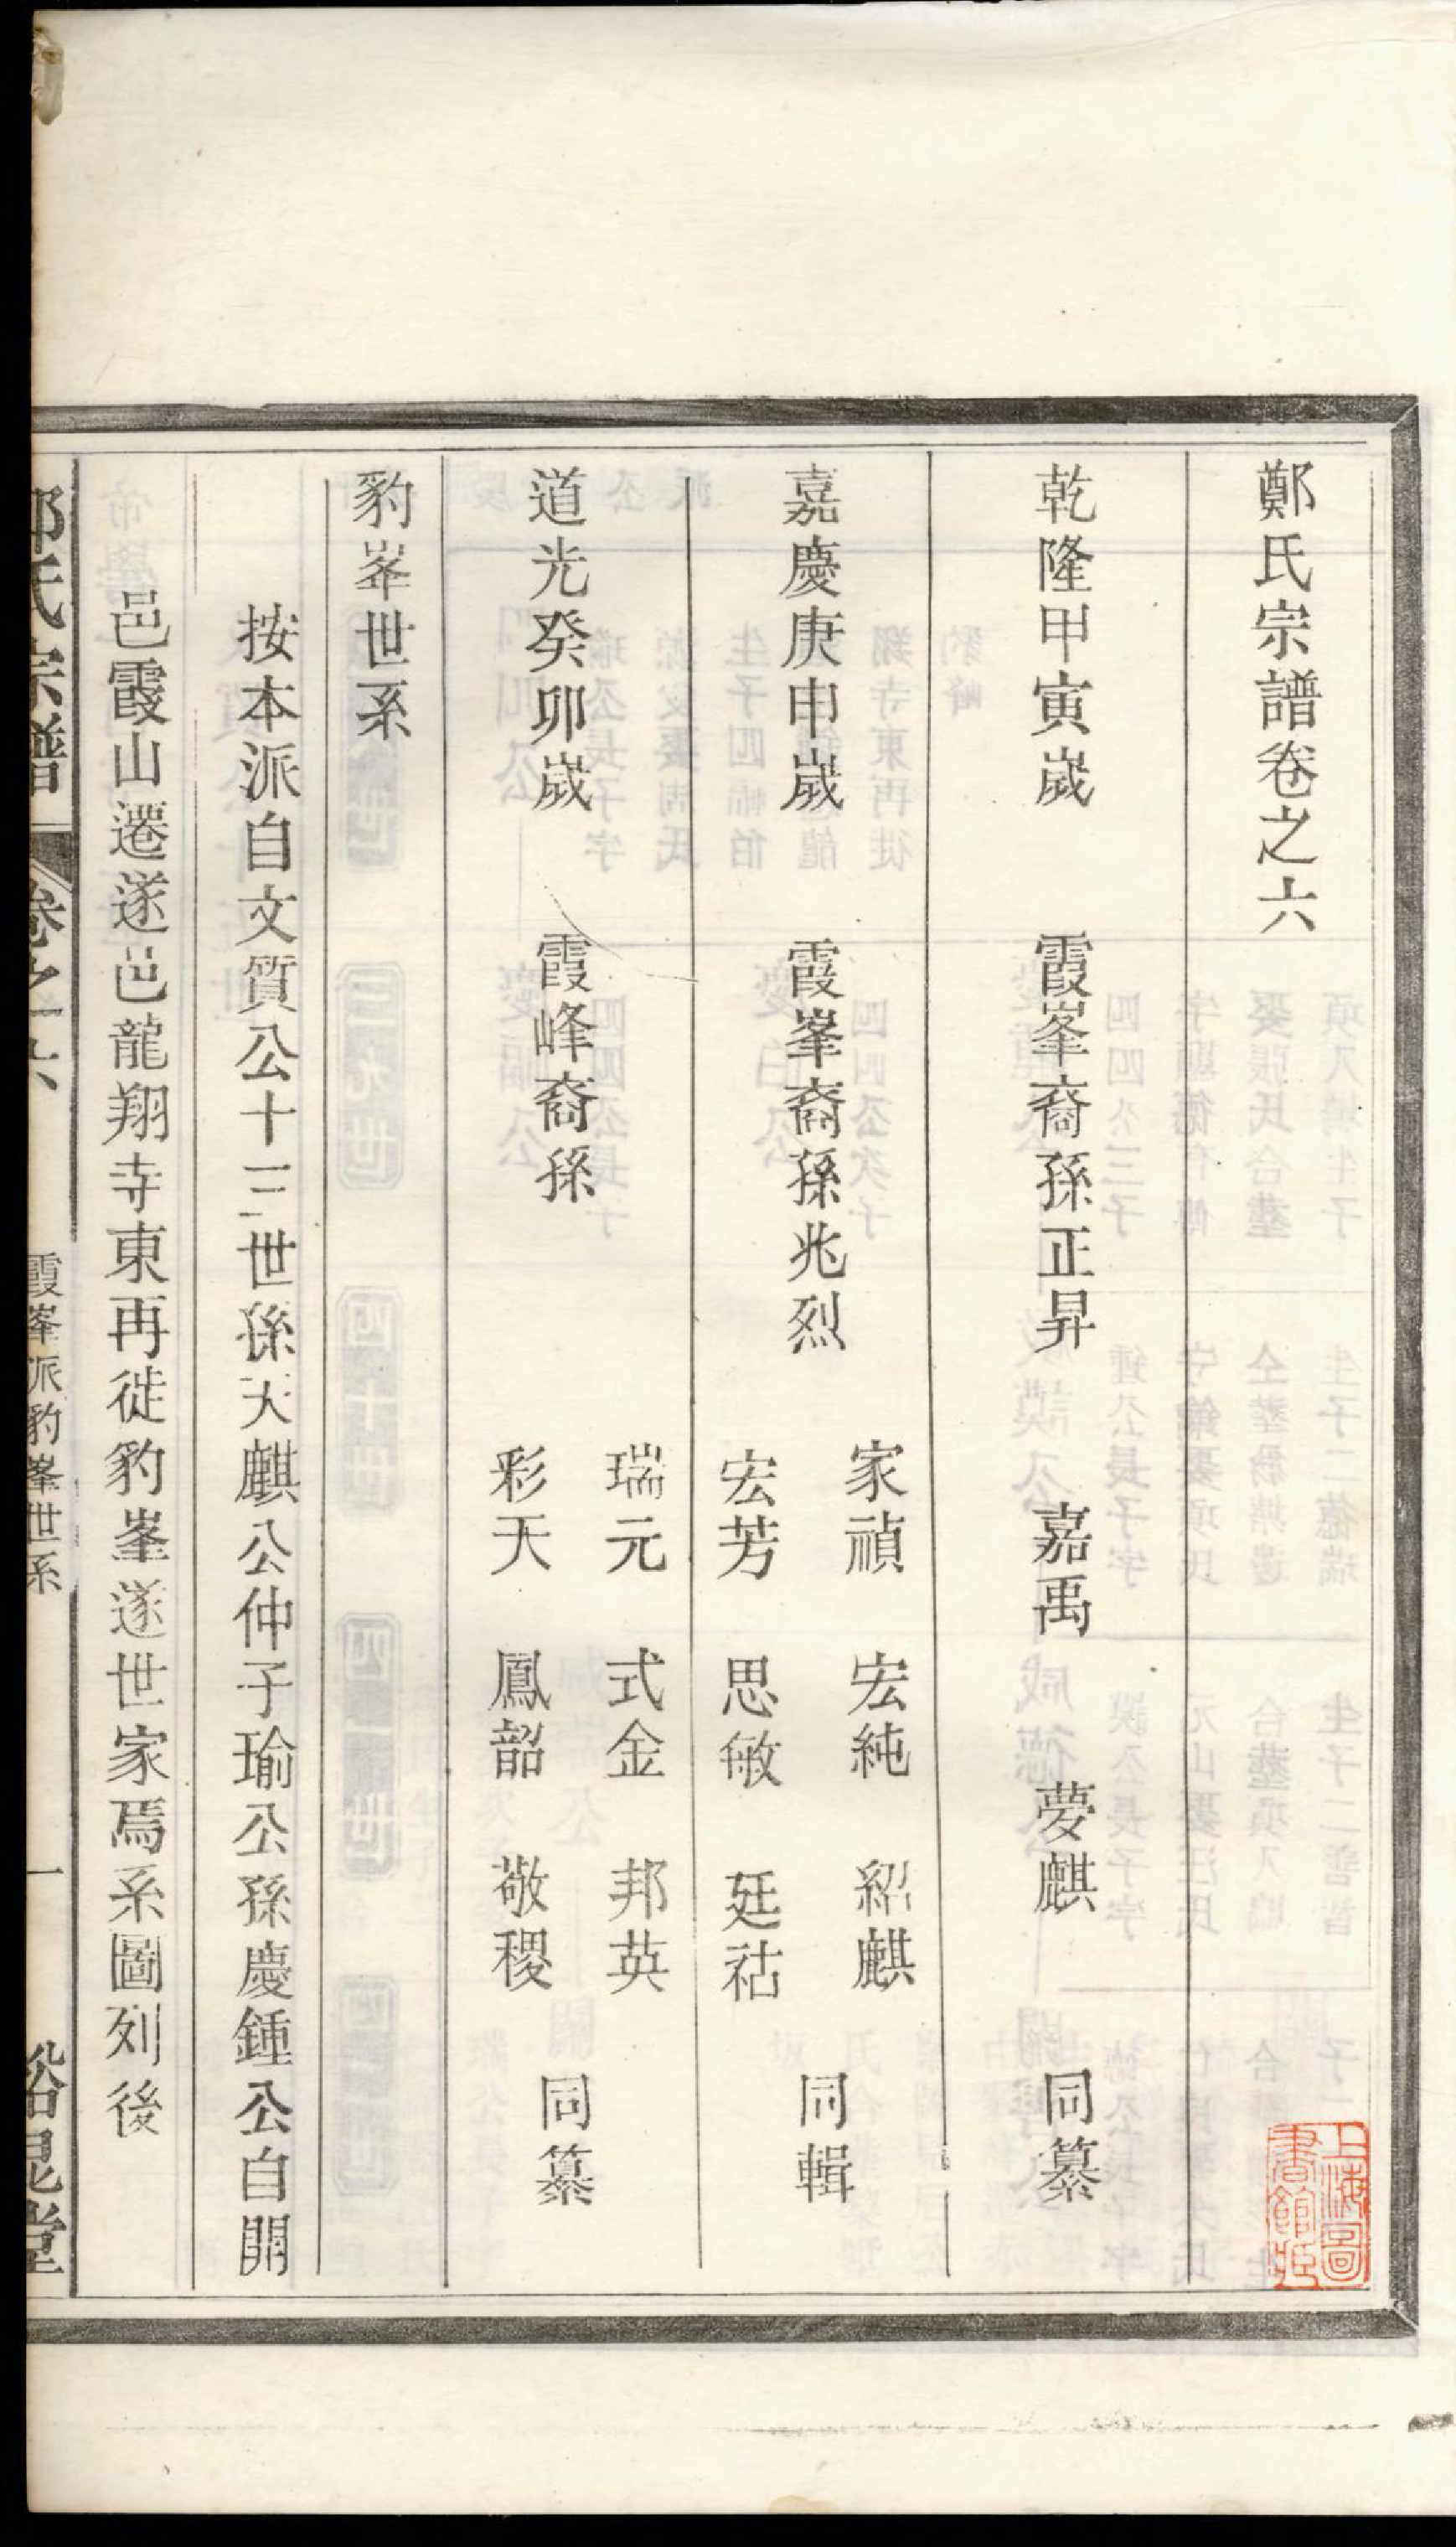 鄭氏宗譜卷之六
乾隆甲寅歲 霞峯裔孫正昇 嘉禹 夢麒 同纂
嘉慶庚申歲 霞峯裔孫兆烈 家禎 宏純 紹麒
宏芳 思敏 廷祜 同輯
道光癸卯歲 霞峰裔孫 瑞元 式金 邦英
彩天 鳳韶 敬稷 同纂
豹峯世系
按本派自文質公十三世孫天麒公仲子瑜公孫慶鍾公自開
邑霞山遷遂邑龍翔寺東再徙豹峯遂世家焉系圖列後
鄭氏宗譜 卷之六 霞峯派豹峯世系 一 裕昆堂
上海圖書館藏